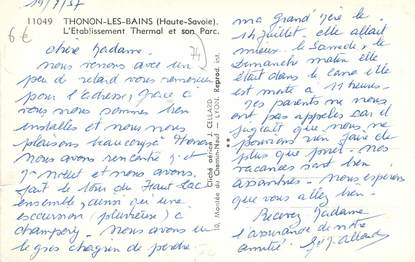 19/7/57
11049 THONON-LES-BAINS (Haute-Savoie).
L'Etablissement Thermal et son Parc.
6€
74
chère Madame.
nous venons avec un
peu de retard vous remercier
pour l'adresse, grâce à
vous nous sommes bien
installés et nous nous
plaisons beaucoup à Thonon
nous avons rencontré
et nous avons
fait le tour du Haut Lac
ensemble, ainsi qu'une
excursion (pluvieuse) à
champery. Nous avons eu
le gros chagrin de perdre
Cliché aérien J. CELLARD
10, Montée du Chemin-Neuf - LYON. Reprod. int.
ma grand'mère le
14 juillet. elle allait
mieux le samedi, le
dimanche matin elle
était dans le coma elle
est morte à 11 heures.
mes parents ne nous
ont pas appelés car il
jugeait que nous ne
pouvions rien faire de
plus que prier. nos
vacances sont bien
assombries. nous espérons
que vous allez bien.
Recevez Madame
l'assurance de notre
amitié.